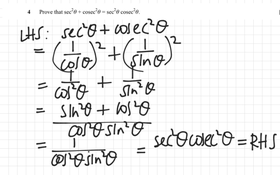 4 Prove that sec²θ + cosec²θ = sec²θ cosec²θ.
LHS: sec²θ + cosec²θ
= (1/cosθ)² + (1/sinθ)²
= 1/cos²θ + 1/sin²θ
= (sin²θ + cos²θ)/(cos²θ sin²θ)
= 1/(cos²θ sin²θ) = sec²θ cosec²θ = RHS